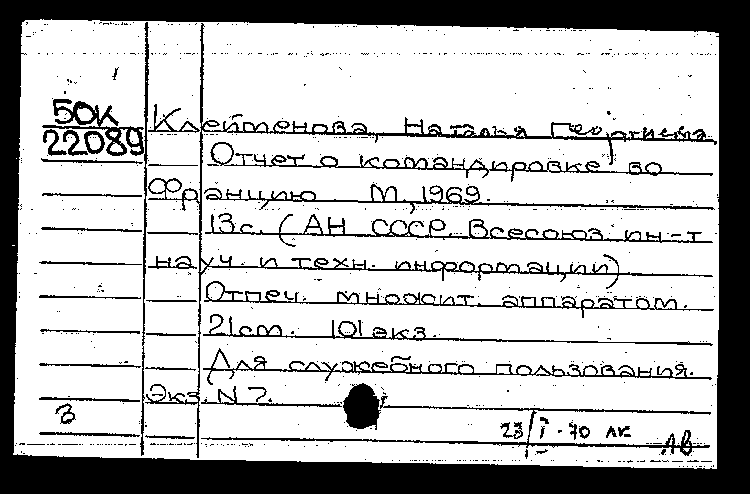 50К
22089
Клейменова, Наталья Георгиевна
Отчет о командировке во
Францию. М., 1969.
13с. (АН СССР. Всесоюз. ин-т
науч. и техн. информации)
Отпеч. множит. аппаратом.
21см. 101 экз.
Для служебного пользования.
Экз. N 7.
3
23/I-70 ЛК
ЛВ